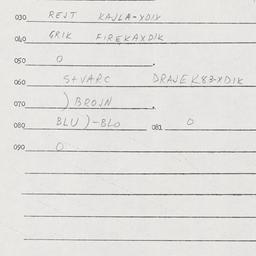 030 REJT KAJLA-XDIK
040 GRIK FIREKAXDIK
050 O
060 S+VARC DRAJEK83-XDIK
070 ) BROJN
080 BLU ) - BLO 081 O
090 O